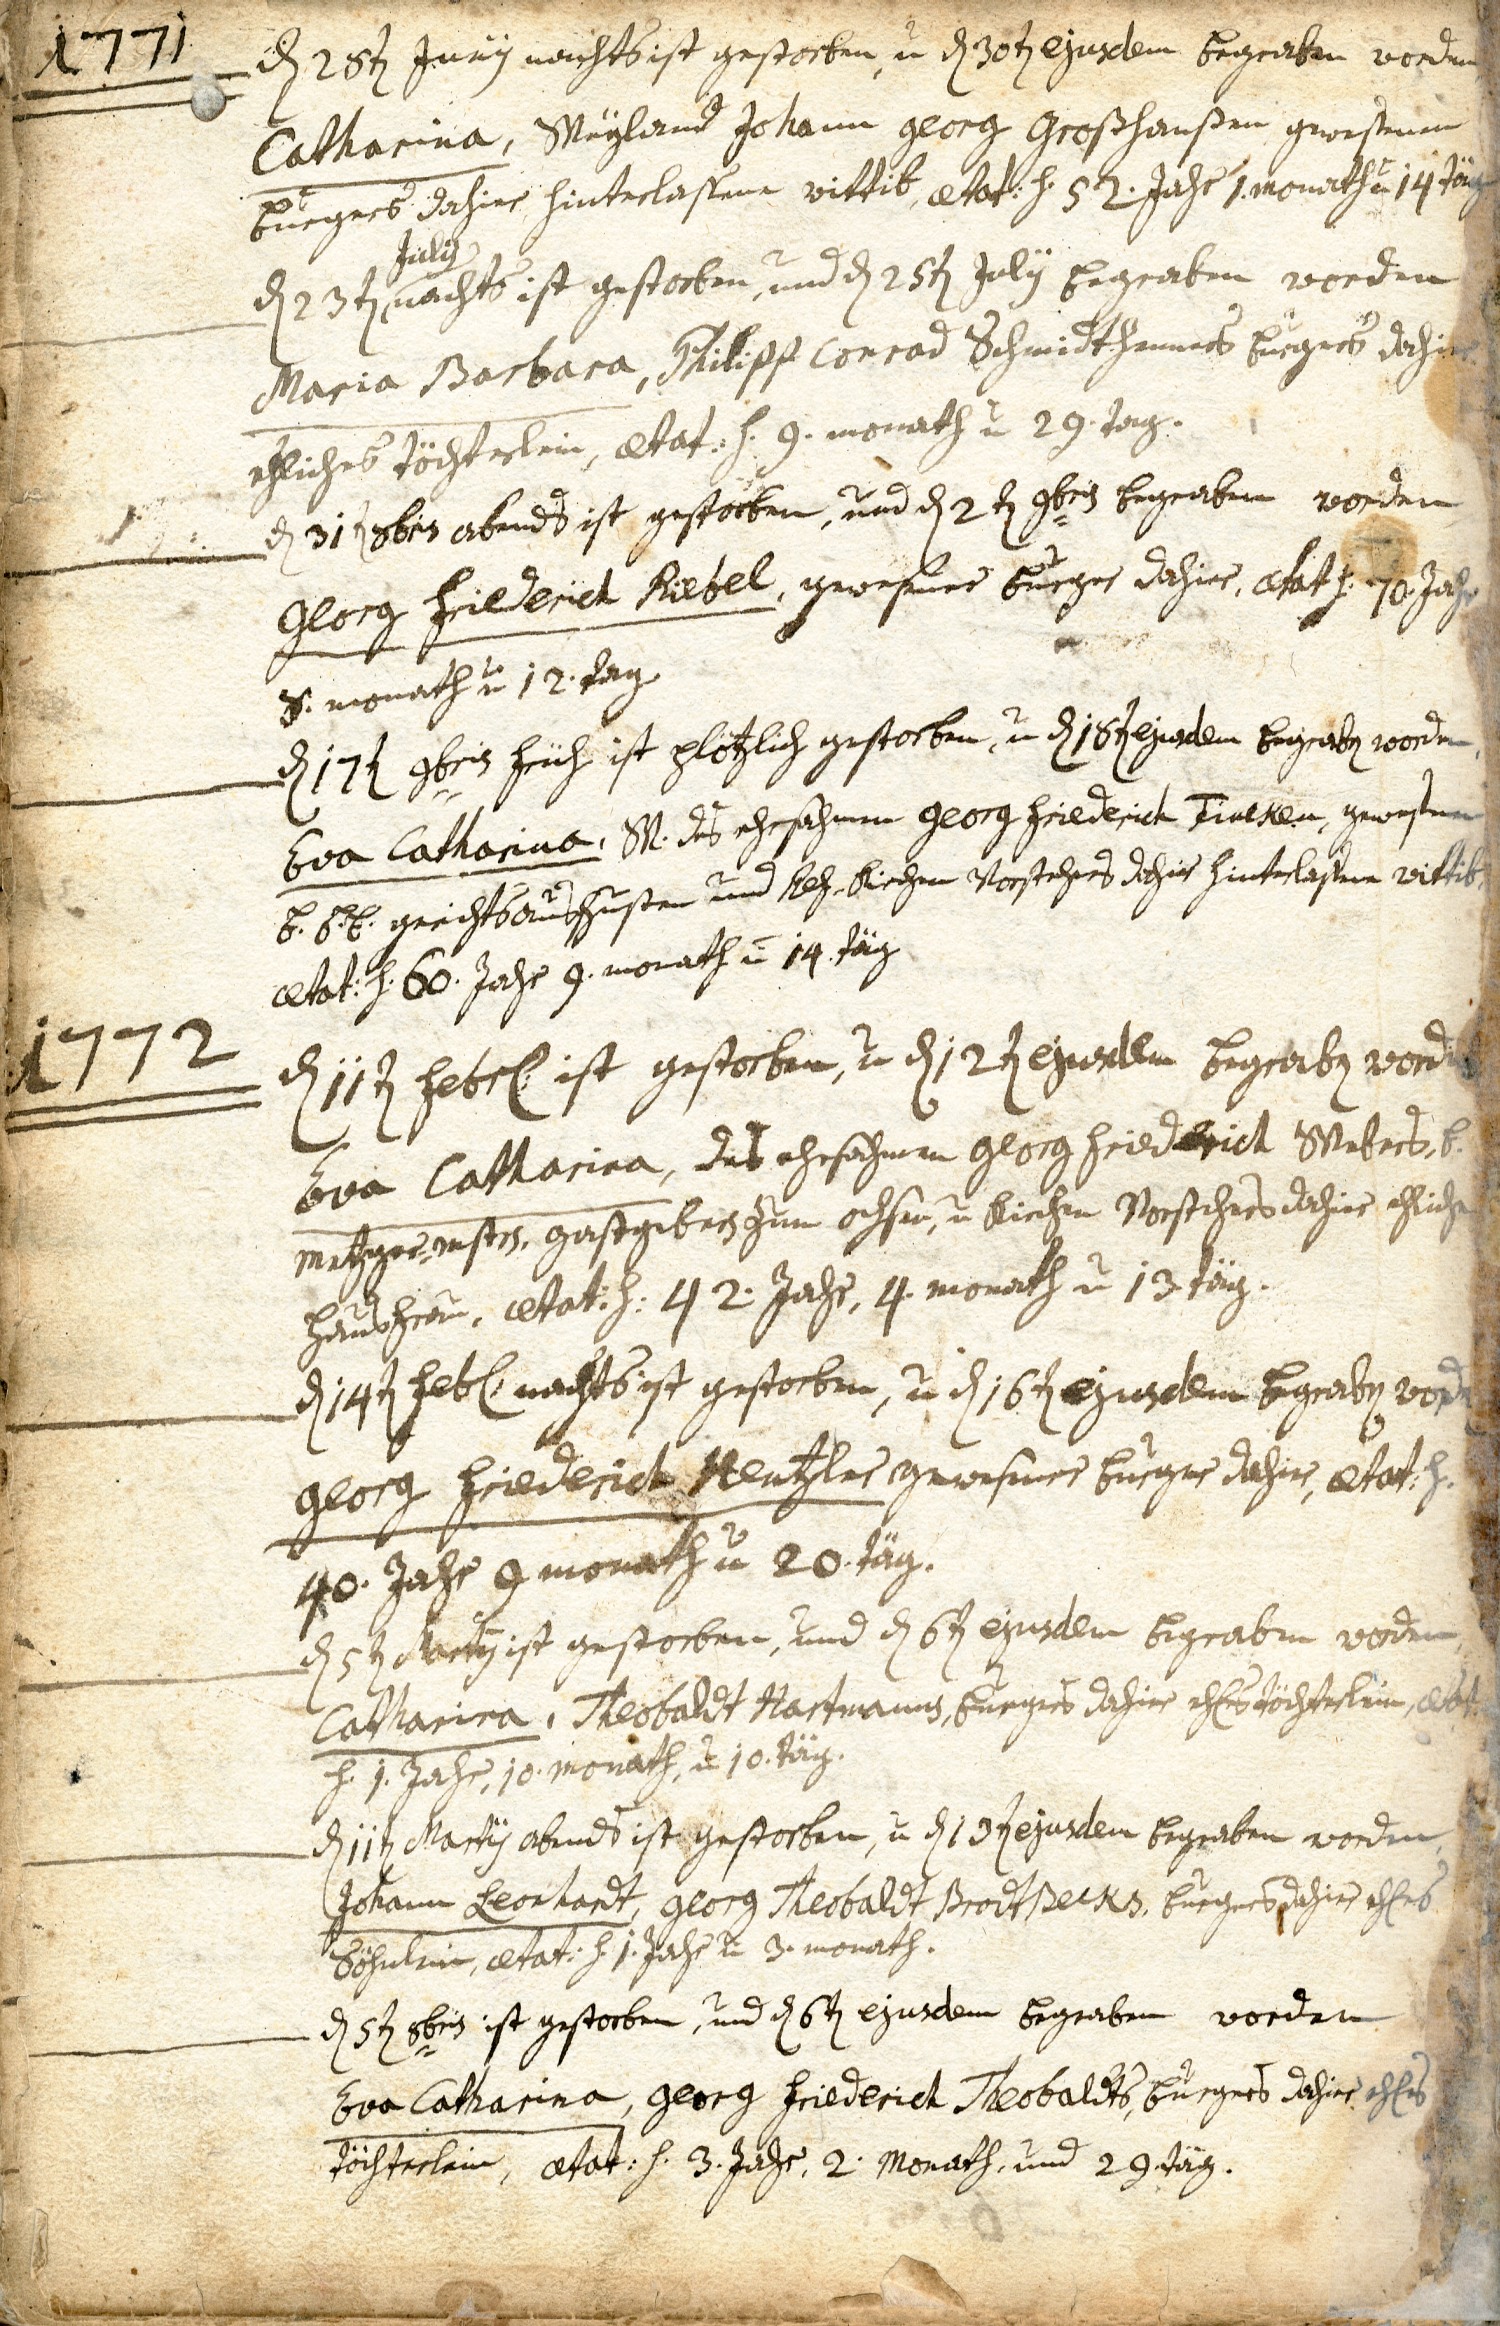 1771
d. 28t. Junÿ nachts ist gestorben, u. d. 30t. ejusdem begraben worden
Catharina, Weÿland Johann Georg Großhansen gewesenen
burgers dahier hinterlaßene wittib, ætat: h. 52. Jahr 1. monath u. 14 täg
Julÿ
d. 23t. nachts ist gestorben, und d. 25t. Julÿ begraben worden
Maria Barbara, Philipp Conrad Schmidthenners burgers dahier
ehliches töchterlein, ætat: h. 9. monath u. 29. tag.
d. 31t. 8bris abends ist gestorben, und d. 2t. 9bris begraben worden
Georg Friederich Riebel, gewesener burger dahier, ætat h. 70. Jahr
8. monath u. 12. tag.
d. 17t. 9bris früh ist plötzlich gestorben, u. d. 18t. ejusdem begrab. worden,
Eva Catharina, W. des ehrsahmen Georg Friederich gewesenen
gerichts und Kirchen Vorstehers dahier hinterlaßene wittib,
ætat: h. 60. Jahr 9. monath u. 14. täg
1772
d. 11t. Febr. ist gestorben, u. d. 12t. ejusdem begrab. worden
Eva Catharina, des ehrsahmen Georg Friederich Webers, b.
Metzger-mstrs, gastgebers zum ochsen, u. Kirchen Vorstehers dahier ehliche
haus frau, ætat: h: 42. Jahr, 4. monath u. 13. täg.
d. 14t. Feb: nachts ist gestorben, u. d. 16t. ejusdem begrab. word
Georg Friederich Kentzler gewesener burger dahier, ætat: h.
40. Jahr 9 monath u. 20. täg.
d. 5t. Martÿ ist gestorben, und d. 6t. ejusdem begraben worden,
Catharina, Theobaldt Hartmanns, burgers dahier ehl. töchterlein, ætat:
h. 1. Jahr, 10. monath, u. 10. täg.
d. 11t. Martÿ abends ist gestorben, u. d. 13t. ejusdem begraben worden,
Johann Leonhardt, Georg Theobaldt Brodtbecks, burgers dahier ehl.
Söhnlein, ætat: h 1. Jahr u. 3. monath.
d. 5t. 8bris ist gestorben, und d. 6t. ejusdem begraben worden
Eva Catharina, Georg Friederich Theobaldts, burgers dahier ehl.
töchterlein, ætat: h. 3. Jahr, 2. Monath, und 29. täg.